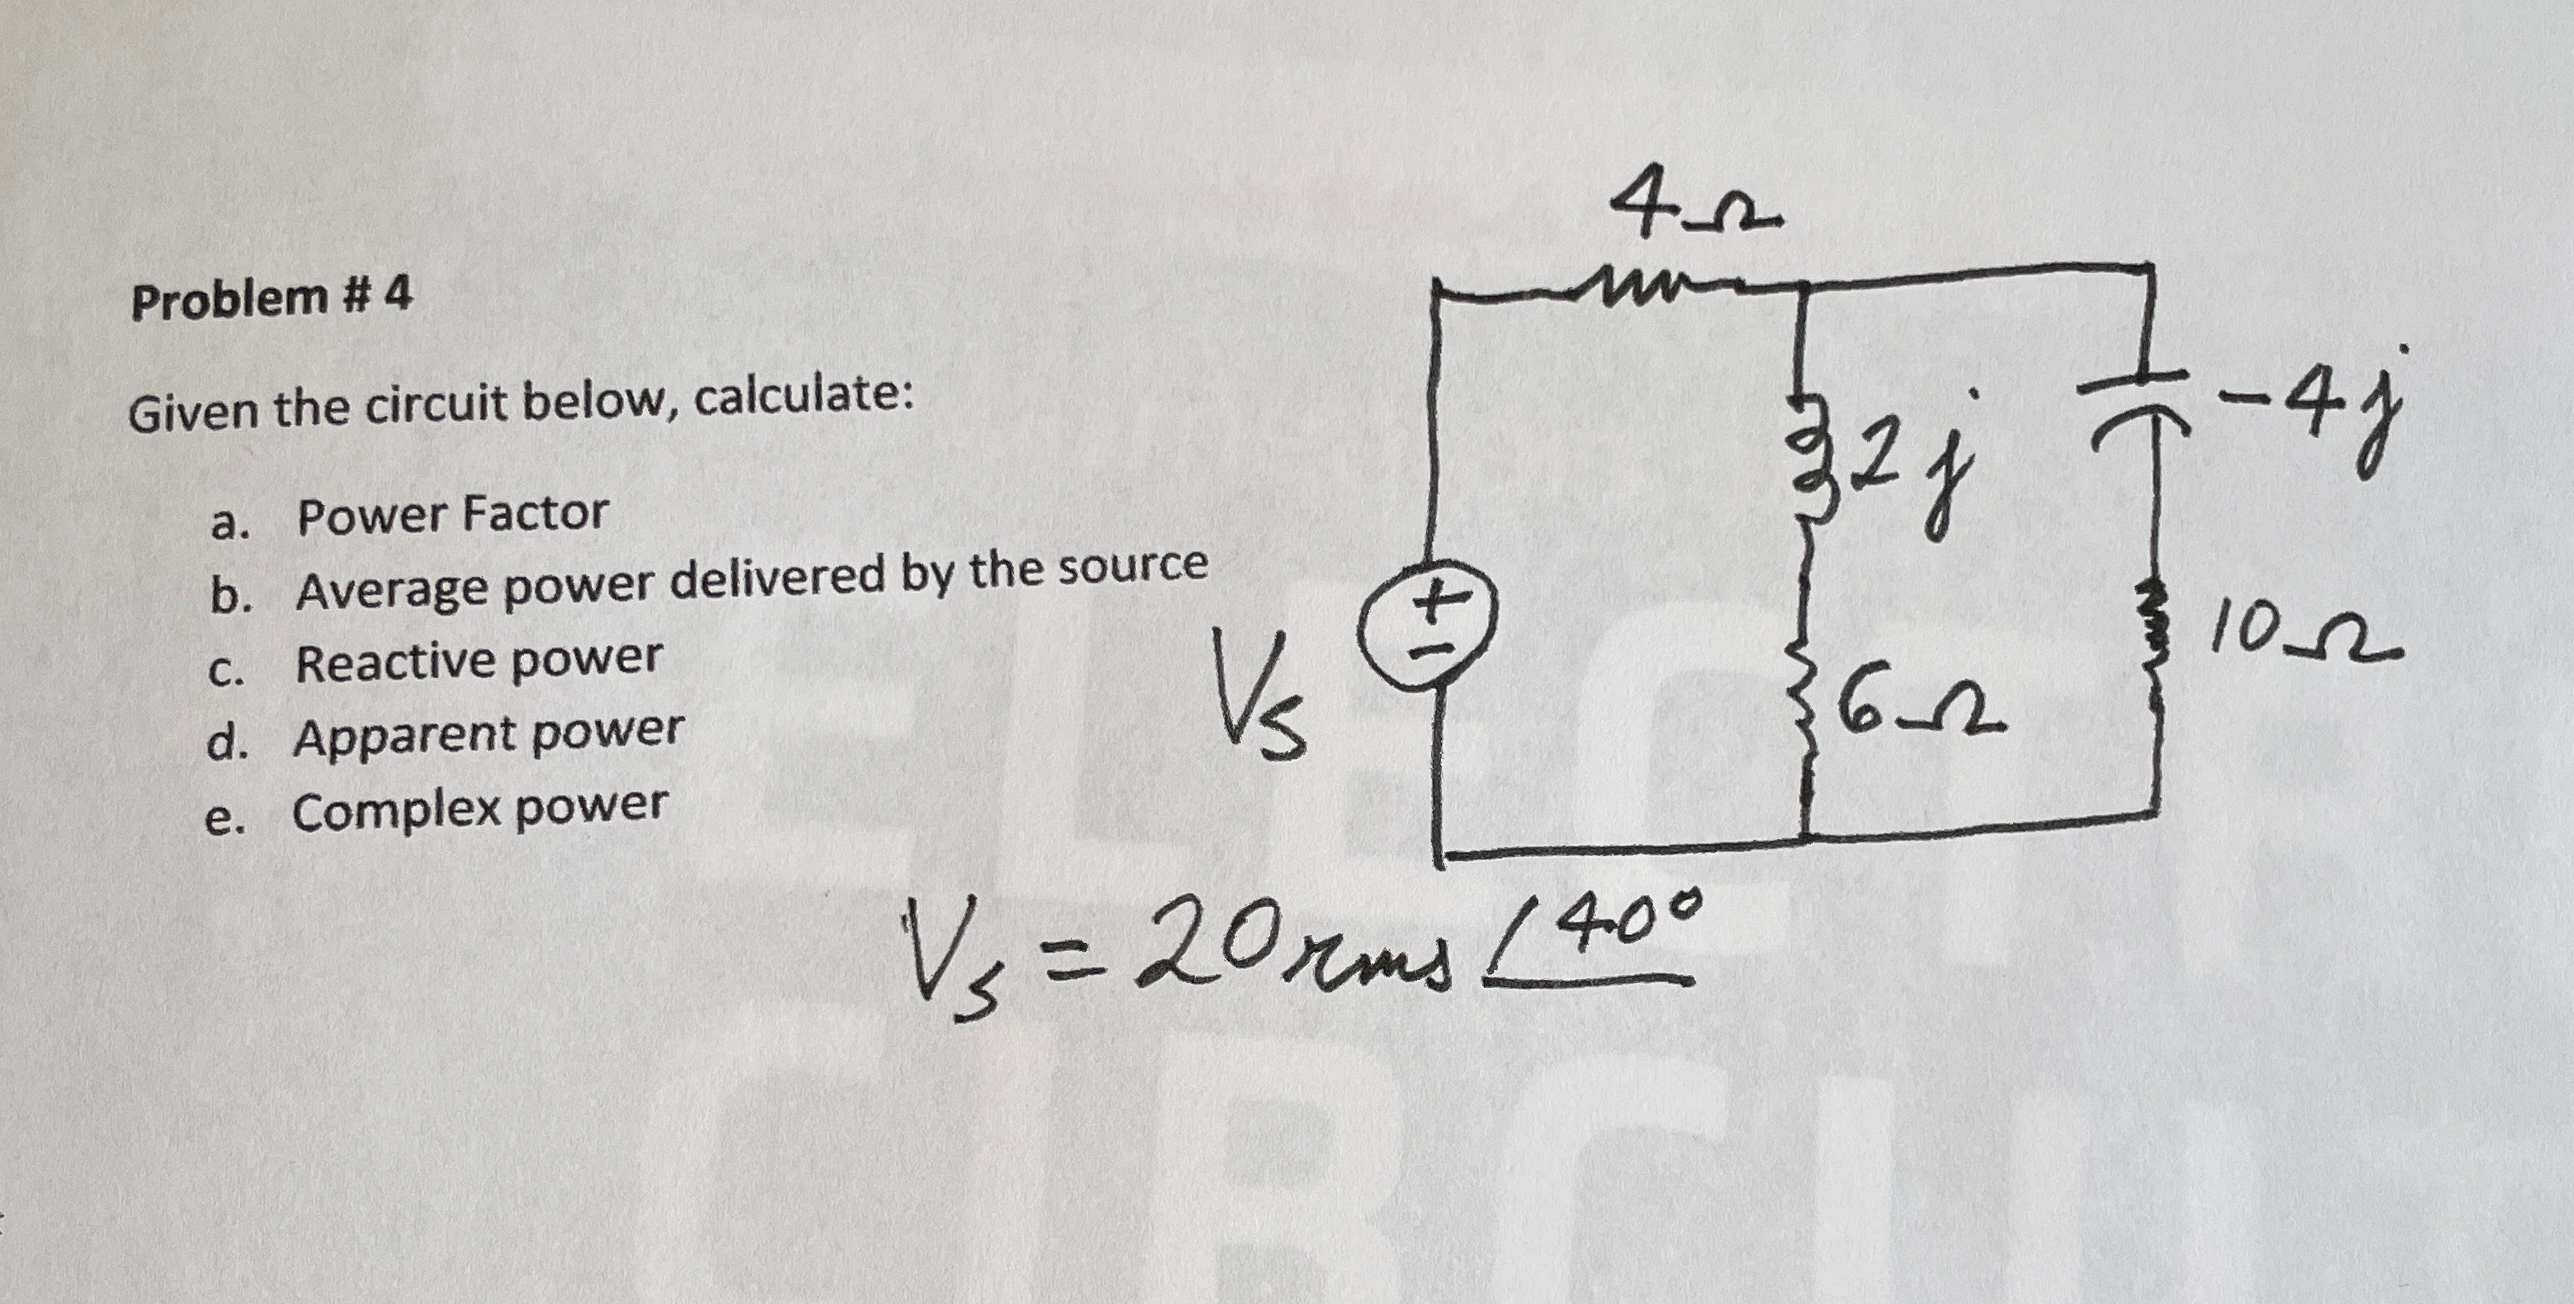 Problem # 4
Given the circuit below, calculate:
a. Power Factor
b. Average power delivered by the source
c. Reactive power
d. Apparent power
e. Complex power
4Ω
2j
-4j
Vs
+
−
6Ω
10Ω
Vs = 20 rms ∠40°
ELECT
CIRCUIT